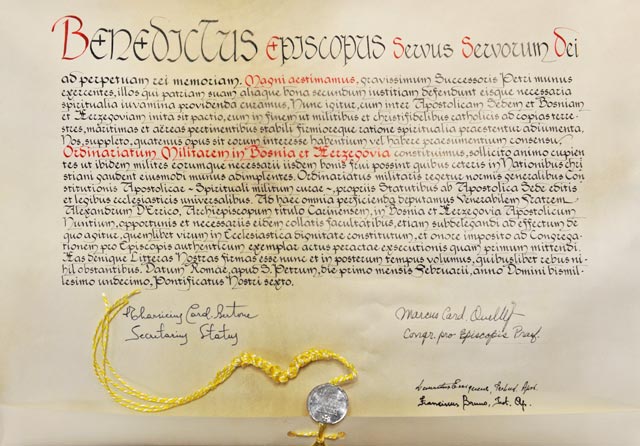 Benedictus Episcopus Servus Servorum Dei
ad perpetuam rei memoriam. Magni aestimamus, gravissimum Successoris Petri munus
exercentes, illos qui patriam suam aliaque bona secundum iustitiam defendunt eisque necessaria
spiritualia iuvamina providenda curamus. Nunc igitur, cum inter Apostolicam Sedem et Bosniam
et Herzegoviam inita sit pactio, eum in finem ut militibus et christifidelibus catholicis ad copias terre-
stres, maritimas et aëreas pertinentibus stabili firmioreque ratione spiritualia praestentur adiumenta,
Nos, suppleto, quatenus opus sit eorum interesse habentium vel habere praesumentium consensu,
Ordinariatum Militarem in Bosnia et Herzegovia constituimus, sollicito animo cupien
tes ut ibidem milites eorumque necessarii iisdem bonis frui possint quibus ceteris in Nationibus chri
stiani gaudent eiusmodi munus adimplentes. Ordinariatus militaris regetur normis generalibus Con
stitutionis Apostolicae - Spirituali militum curae -, propriis Statutibus ab Apostolica Sede editis
et legibus ecclesiasticis universalibus. Ad haec omnia perficienda deputamus Venerabilem Fratrem
Alexandrum D'Errico, Archiepiscopum titulo Carinensem, in Bosnia et Herzegovia Apostolicum
Nuntium, opportunis et necessariis eidem collatis facultatibus, etiam subdelegandi ad effectum de
quo agitur, quemlibet virum in Ecclesiastica dignitate constitutum, et onere imposito ad Congrega
tionem pro Episcopis authenticum exemplar actus peractae exsecutionis quam primum mittendi.
Has denique Litteras Nostras firmas esse nunc et in posterum tempus volumus, quibuslibet rebus ni-
hil obstantibus. Datum Romae, apud S. Petrum, die primo mensis Februarii, anno Domini bismil-
lesimo undecimo, Pontificatus Nostri sexto.
Tharcisius Card. Bertone
Secretarius Status
Marcus Card. Ouellet
Congr. pro Episcopis Praef.
Franciscus Bruno,